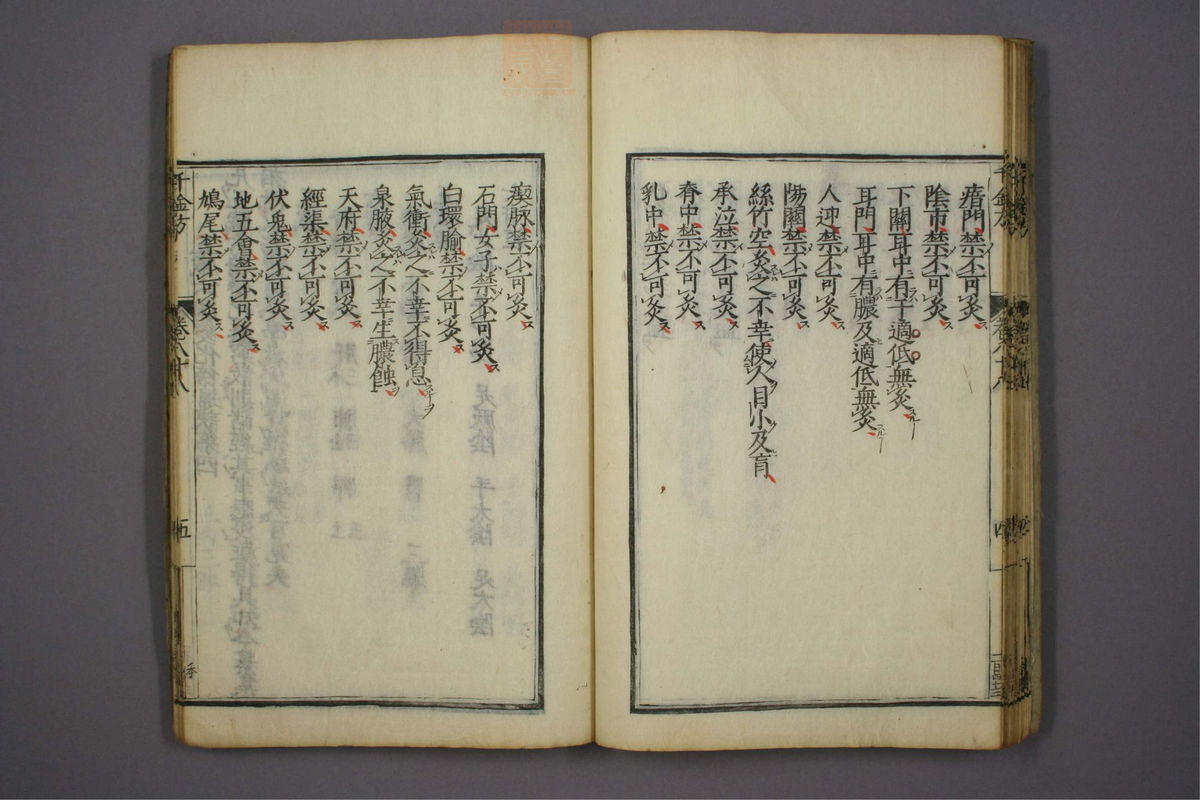 瘖門禁不可灸
陰市禁不可灸
下關耳中有干適低無灸
耳門耳中有膿及適低無灸
人迎禁不可灸
陽關禁不可灸
絲竹空灸之不幸使人目小及肓
承泣禁不可灸
脊中禁不可灸
乳中禁不可灸
瘈脉禁不可灸
石門女子禁不可灸
白環腧禁不可灸
氣衝灸之不幸不得息
泉腋灸之不幸生膿蝕
天府禁不可灸
經渠禁不可灸
伏兎禁不可灸
地五會禁不可灸
鳩尾禁不可灸
千金方
五